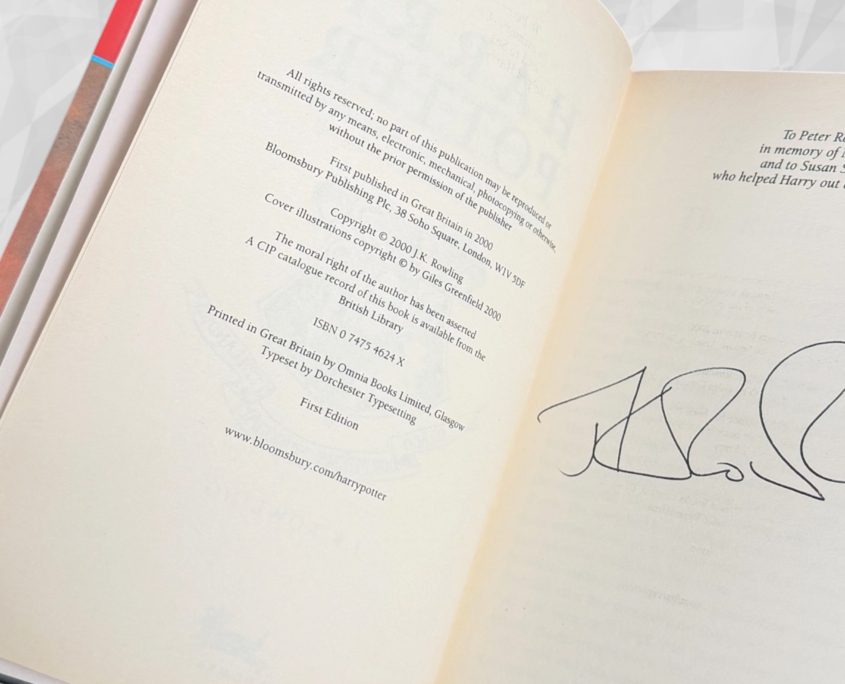 All rights reserved; no part of this publication may be reproduced or
transmitted by any means, electronic, mechanical, photocopying or otherwise,
without the prior permission of the publisher
First published in Great Britain in 2000
Bloomsbury Publishing Plc, 38 Soho Square, London, W1V 5DF
Copyright © 2000 J.K. Rowling
Cover illustrations copyright © by Giles Greenfield 2000
The moral right of the author has been asserted
A CIP catalogue record of this book is available from the
British Library
ISBN 0 7475 4624 X
Printed in Great Britain by Omnia Books Limited, Glasgow
Typeset by Dorchester Typesetting
First Edition
www.bloomsbury.com/harrypotter
To Peter
in memory of
and to Susan
who helped Harry out